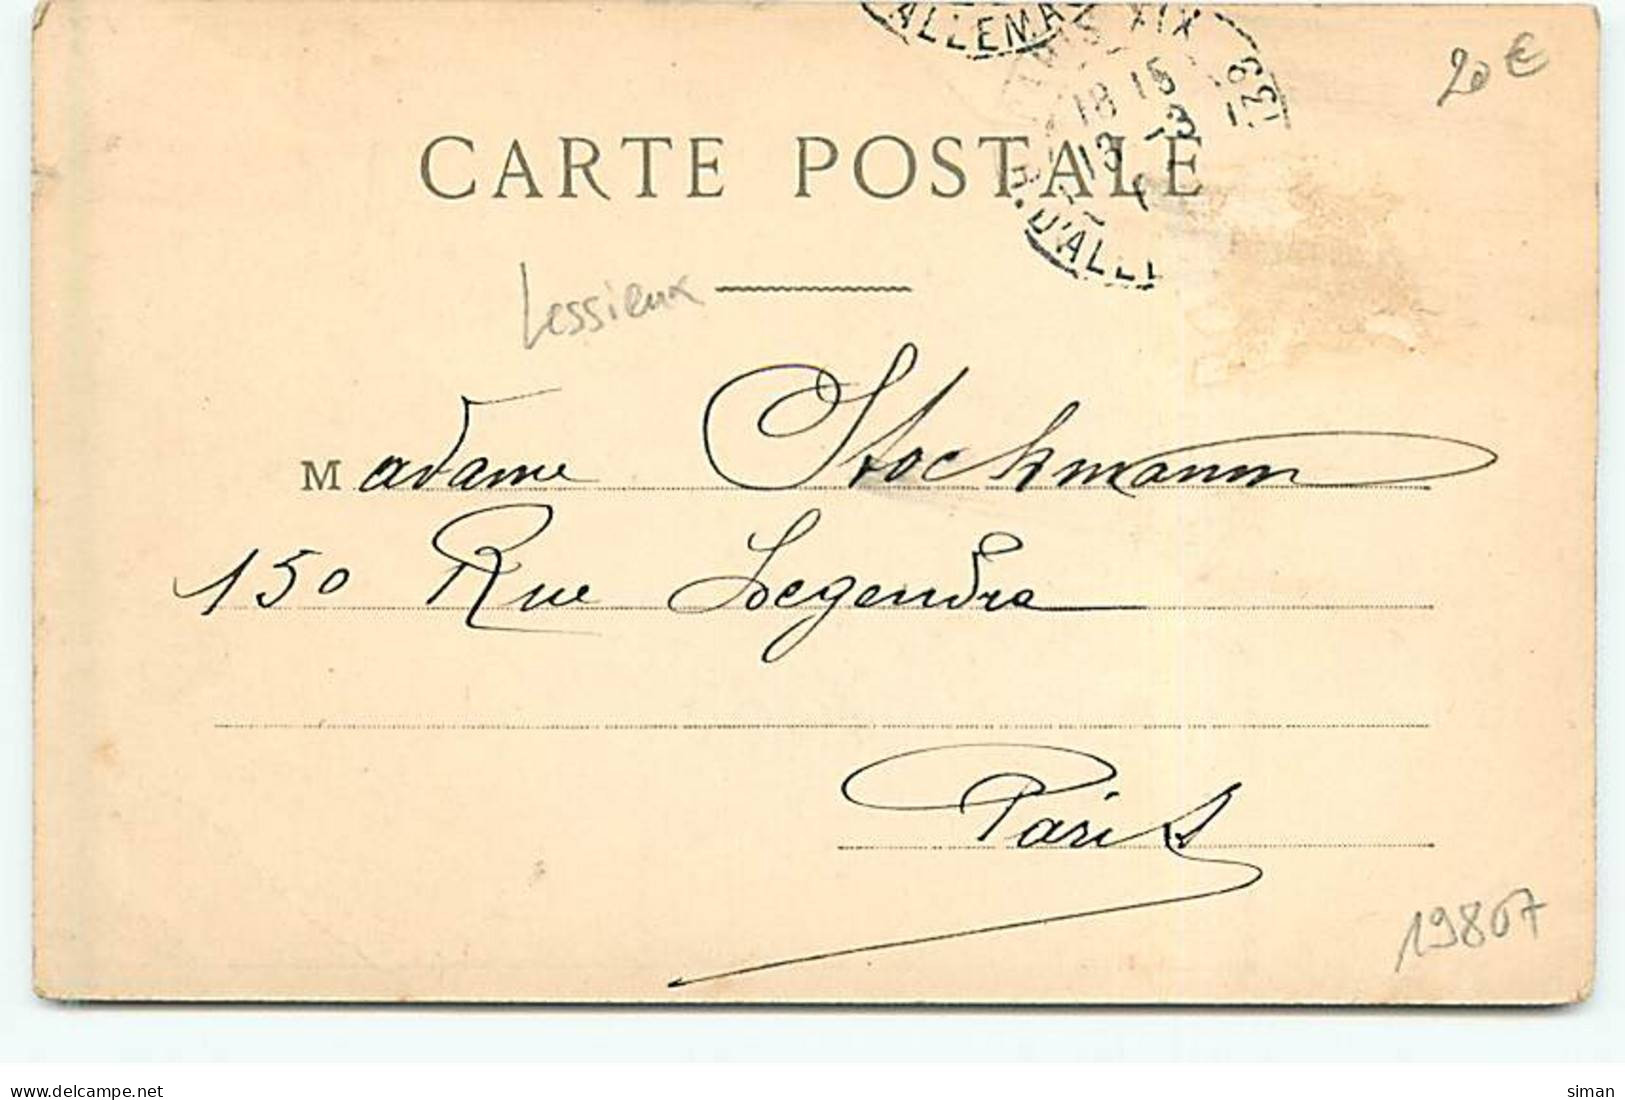 ALLEMA
XIX
18 15
13 - 3
R. D'ALLE
20 €
CARTE POSTALE
Lessieux
Madame Stockmann
150 Rue Legendre
Paris
19807
www.delcampe.net
siman